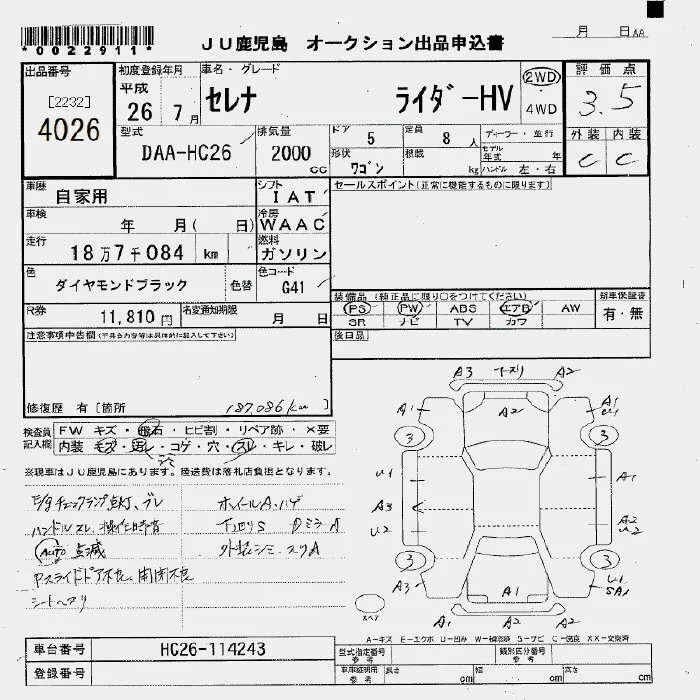 *0022911*
JU鹿児島 オークション出品申込書
月 日 AA
出品番号
[2232]
4026
初度登録年月
平成
26 7月
車名・グレード
セレナ ライダーHV
2WD
4WD
評価点
3.5
外装 内装
C C
型式
DAA-HC26
排気量
2000 CC
ドア 5
定員 8人
形状 ワゴン
積載 kg
ディーラー・並行
モデル年式 年
ハンドル 左・右
車歴
自家用
シフト
IAT
セールスポイント(正常に機能するものに限ります)
車検
年 月( 日)
冷房
WAAC
走行
18万7千084 km
燃料
ガソリン
色
ダイヤモンドブラック
色替
色コード
G41
装備品(純正品に限り○をつけてください)
PS PW ABS エアB AW
SR ナビ TV カワ
新車保証書
有・無
R券
11,810円
名変通知期限
月 日
後日品
注意事項申告欄
修復歴 有〔箇所
187,086km)
検査員記入欄
FW キズ・飛石・ヒビ割・リペア跡・×要
内装 キズ・汚レ・コゲ・穴・スレ・キレ・破レ
※現車はJU鹿児島にあります。陸送費は落札店負担となります。
E/gチェックランプ点灯、ブレ
ハンドルスレ、操作時音
AUTO 点滅
Pスライドドア不良、開閉不良
シートヘタリ
ホイールA・ハゲ
下廻りS DミラーA
外装シミ・スリA
A3 A2
A1 A2 A1 U1
3 3
U1 A1
A3 A2
U2 U2
3 3
A3 A1 U1 SA1
A2 A2
スペア
A-キズ E-エクボ U-凹み W-補修跡 S-サビ C-腐食 XX-交換済
車台番号
HC26-114243
登録番号
型式指定番号 参考
類別区分番号 参考
車庫証明用 参考
長さ cm
幅 cm
高さ cm